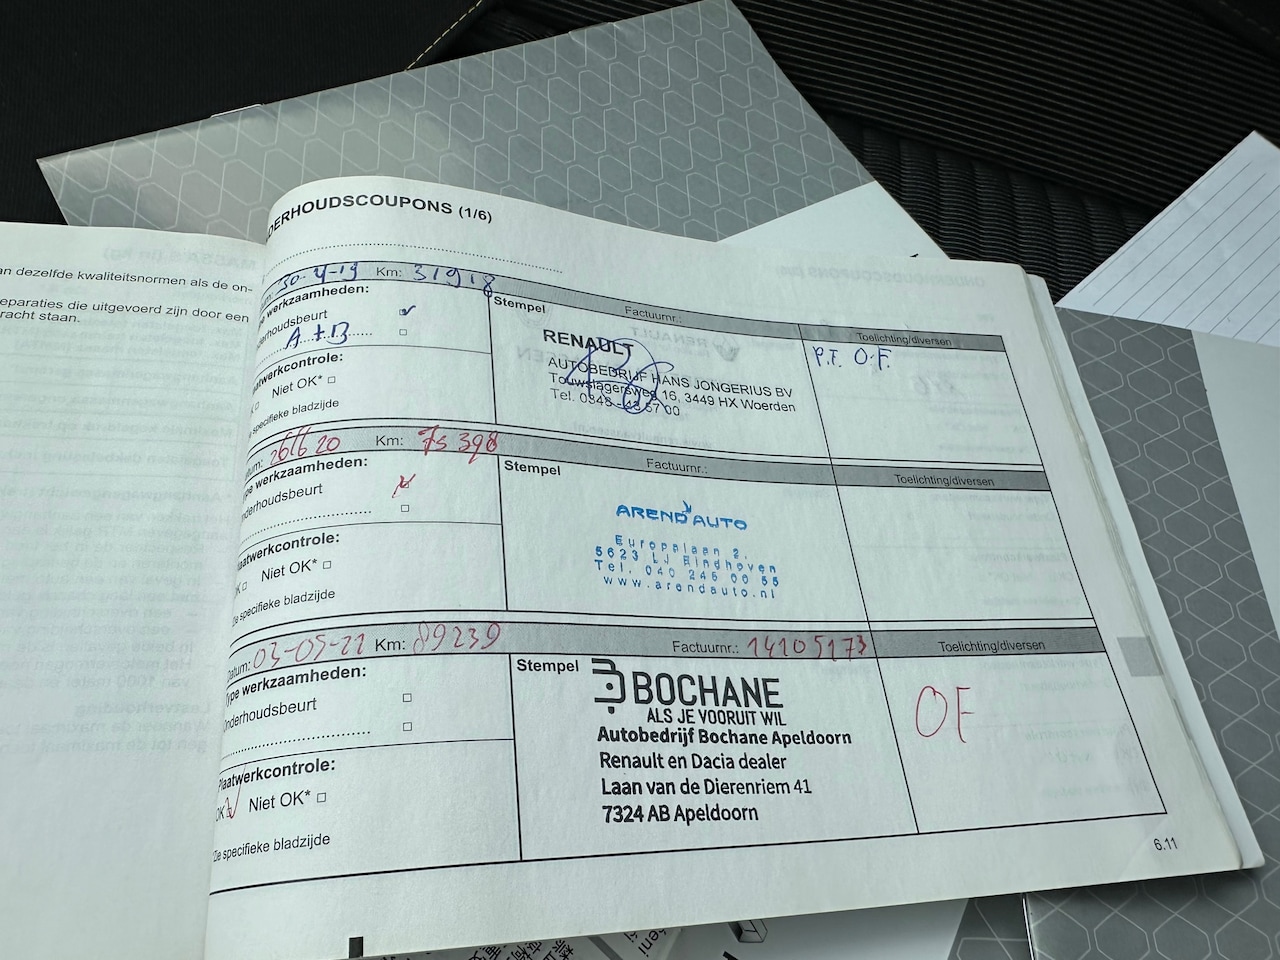 an dezelfde kwaliteitsnormen als de on-
eparaties die uitgevoerd zijn door een
racht staan.
DERHOUDSCOUPONS (1/6)
30-4-19 Km: 31918
Stempel Factuurnr.: Toelichting/diversen
pe werkzaamheden:
derhoudsbeurt
A+B
aatwerkcontrole:
Niet OK*
e specifieke bladzijde
RENAULT
AUTOBEDRIJF HANS JONGERIUS BV
Touwslagersweg 16, 3449 HX Woerden
Tel. 0348 - 43 57 00
P.F. O.F.
tum: 26/6 20 Km: 75 398
Stempel Factuurnr.: Toelichting/diversen
ype werkzaamheden:
nderhoudsbeurt
laatwerkcontrole:
Niet OK*
Zie specifieke bladzijde
AREND AUTO
Europalaan 2,
5623 LJ Eindhoven
Tel. 040 246 00 55
www.arendauto.nl
Datum: 03-05-22 Km: 89239 Factuurnr.: 14105173 Toelichting/diversen
Type werkzaamheden:
Onderhoudsbeurt
Plaatwerkcontrole:
OK Niet OK*
*Zie specifieke bladzijde
Stempel
BOCHANE
ALS JE VOORUIT WIL
Autobedrijf Bochane Apeldoorn
Renault en Dacia dealer
Laan van de Dierenriem 41
7324 AB Apeldoorn
OF
6.11